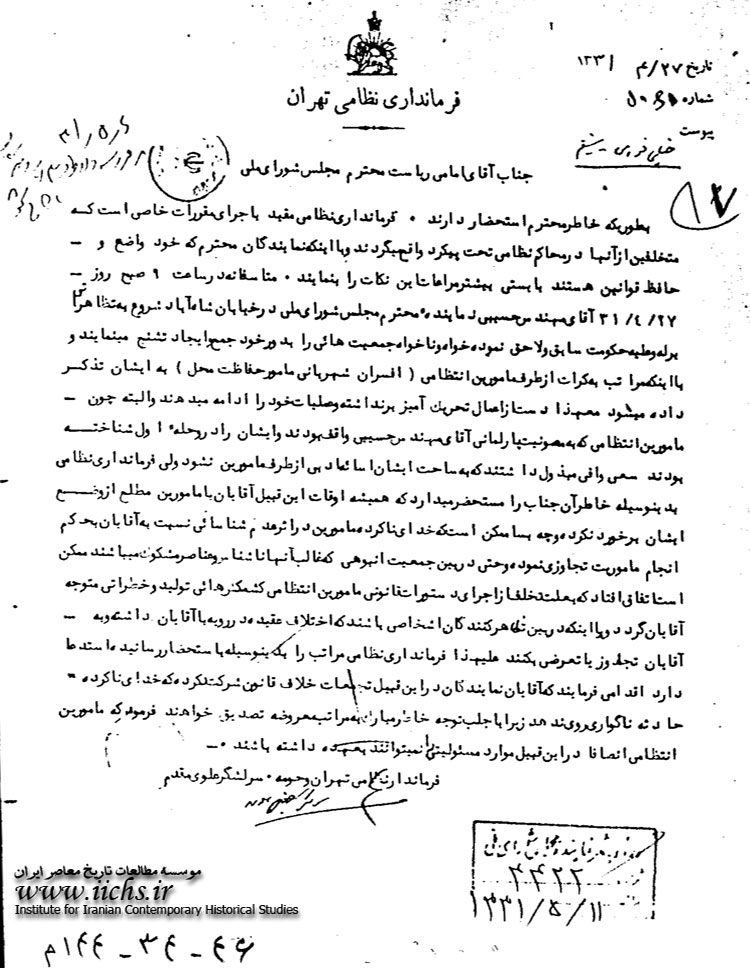 تاریخ ۲۷/ ۴/ ۱۳۳۱
شماره
پیوست
فرمانداری نظامی تهران
خیلی فوری - مستقیم
جناب آقای امامی ریاست محترم مجلس شورای ملی
بطوریکه خاطر محترم استحضار دارند ۰ فرمانداری نظامی مقید باجرای مقررات خاصی است که
متخلفین از آنها در محاکم نظامی تحت پیگرد واقع میگردند و با اینکه نمایندگان محترم که خود واضع و -
حافظ قوانین هستند بایستی بیشتر مراعات این نکات را بنمایند ۰ متاسفانه در ساعت ۹ صبح روز -
۳۱/۴/۲۷ آقای مهندس حسیبی نماینده محترم مجلس شورای ملی در خیابان شاه آباد شروع به تظاهراتی
برله وعلیه حکومت سابق ولاحق نموده خواه وناخواه جمعیت هائی را بدور خود جمع ایجاد تشنج مینمایند و
با اینکه مراتب به کرات از طرف مامورین انتظامی ( افسران شهربانی مامور حفاظت محل ) به ایشان تذکر
داده میشود معهذا دست از اعمال تحریک آمیز برنداشته وعملیات خود را ادامه میدهند والبته چون -
مامورین انتظامی که به مصونیت پارلمانی آقای مهندس حسیبی واقف بودند وایشان را در وحله اول شناخته
بودند سعی وافی مبذول داشتند که به ساحت ایشان اسائه ادبی از طرف مامورین نشود ولی فرمانداری نظامی
بدینوسیله خاطر آن جناب را مستحضر میدارد که همیشه اوقات این قبیل آقایان با مامورین مطلع از وضع
ایشان برخورد نکرده وچه بسا ممکن است که خدای ناکرده مامورین در اثر عدم شناسائی نسبت به آقایان بحکم
انجام ماموریت تجاوزی نموده وحتی در بین جمعیت انبوهی که غالب آنها ناشناس وعناصر مشکوک میباشند ممکن
است اتفاقی افتاد که بعلت تخلف از اجرای دستورات قانونی مامورین انتظامی کشمکش هائی تولید وخطراتی متوجه
آقایان گردد ویا اینکه در بین تظاهر کنندگان اشخاصی باشند که اختلاف عقیده در رویه با آقایان داشته وبه -
آقایان تجاوز یا تعرضی بکنند علیهذا فرمانداری نظامی مراتب را بدینوسیله باستحضار رسانیده استدعا
دارد اقدامی فرمایند که آقایان نمایندگان در این قبیل تجمعات خلاف قانون شرکت نکرده که خدای ناکرده -
حادثه ناگواری روی ندهد زیرا با جلب توجه خاطر مبارک به مراتب معروضه تصدیق خواهند فرمود که مامورین
انتظامی انصافا در این قبیل موارد مسئولیتی را نمیتوانند بعهده داشته باشند ۰-
فرماندار نظامی تهران وحومه ۰ سرلشگر علوی مقدم
مجلس شورای ملی
۴۴۲۲
۱۳۳۱/۵/۱۱
موسسه مطالعات تاریخ معاصر ایران
www.iichs.ir
Institute for Iranian Contemporary Historical Studies
۴۶ - ۳۴ - ۱۴۴م